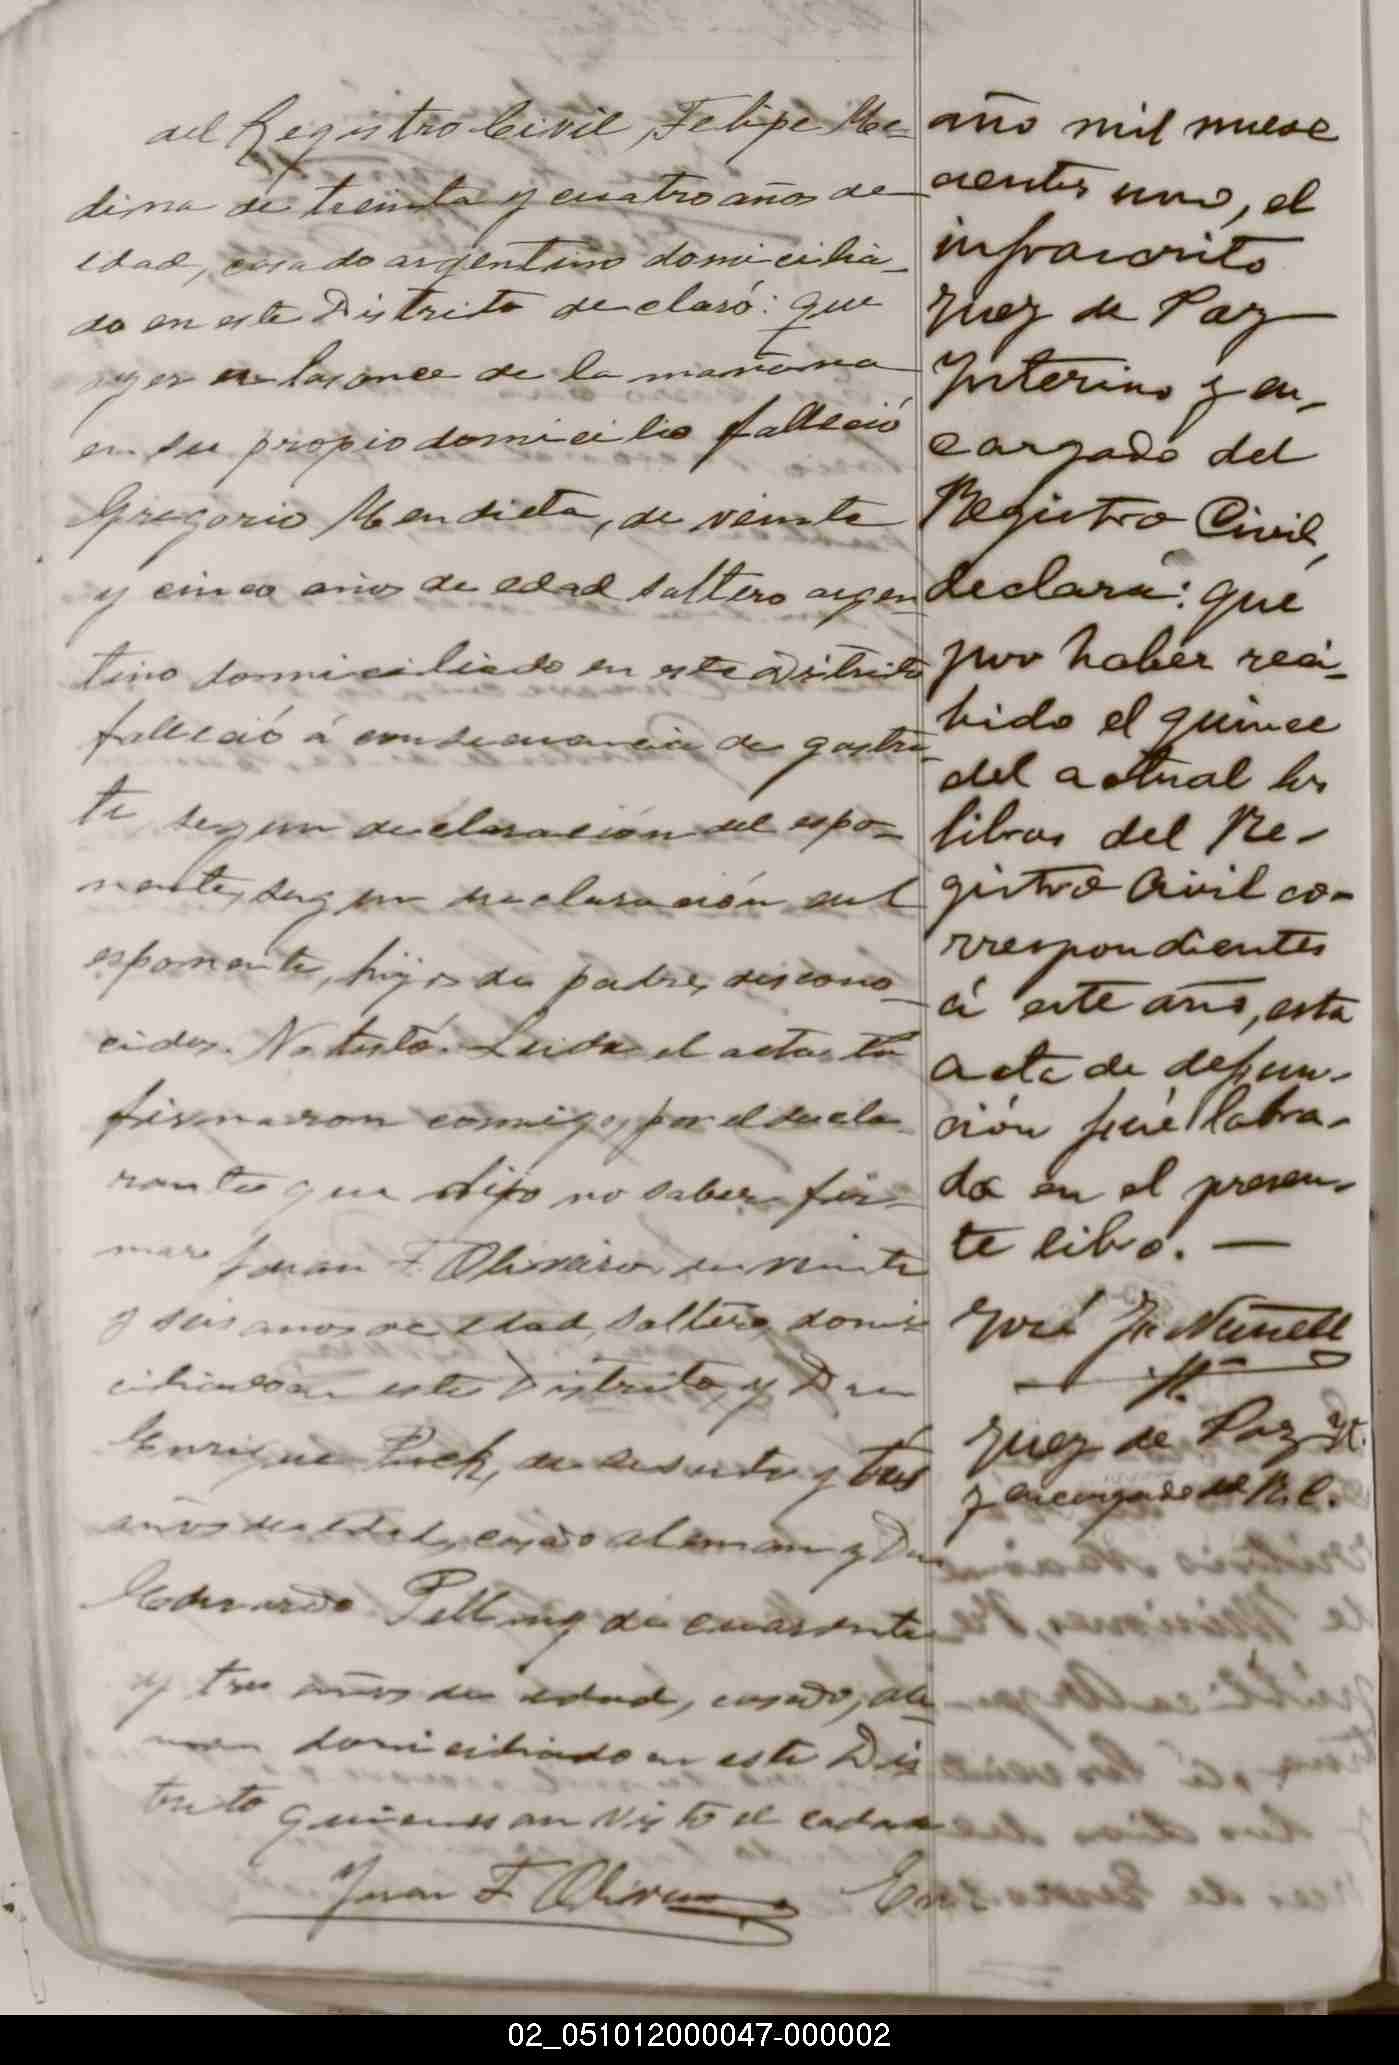 del Registro Civil, Felipe Me-
dina de treinta y cuatro años de
edad, casado argentino domicilia-
do en este Distrito declaró: que
ayer a las once de la mañana
en su propio domicilio falleció
Gregorio Mendieta, de veinte
y cinco años de edad soltero argen
tino domiciliado en este Distrito
falleció á consecuencia de gastri-
ti segun declaración del espo-
nente, segun declaración del
esponente, hijo de padres descono-
cidos. No testó. Leida el acta la
firmaron conmigo, por el decla
rante que dijo no saber fir-
mar Juan F. Oliveira de veinte
y seis anos de edad, soltero domi-
ciliado en este Distrito, y Don
Enrique Puck, de sesenta y tres
años de edad, casado aleman y Don
Eduardo Pelling de cuarenta
y tres años de edad, casado, ale-
man domiciliado en este Dis
trito quienes an visto el cadaver
Juan F Oliveira En
año mil nueve
cientos uno, el
infrascrito
Juez de Paz
Interino y en-
cargado del
Registro Civil,
declara: que
por haber reci-
bido el quince
del actual los
libros del Re-
gistro Civil co-
rrespondientes
á este año, esta
acta de defun-
ción fué labra-
da en el presen-
te libro. —
José J. Nuñell
Juez de Paz It.
y encargado del R. C.
02_051012000047-000002